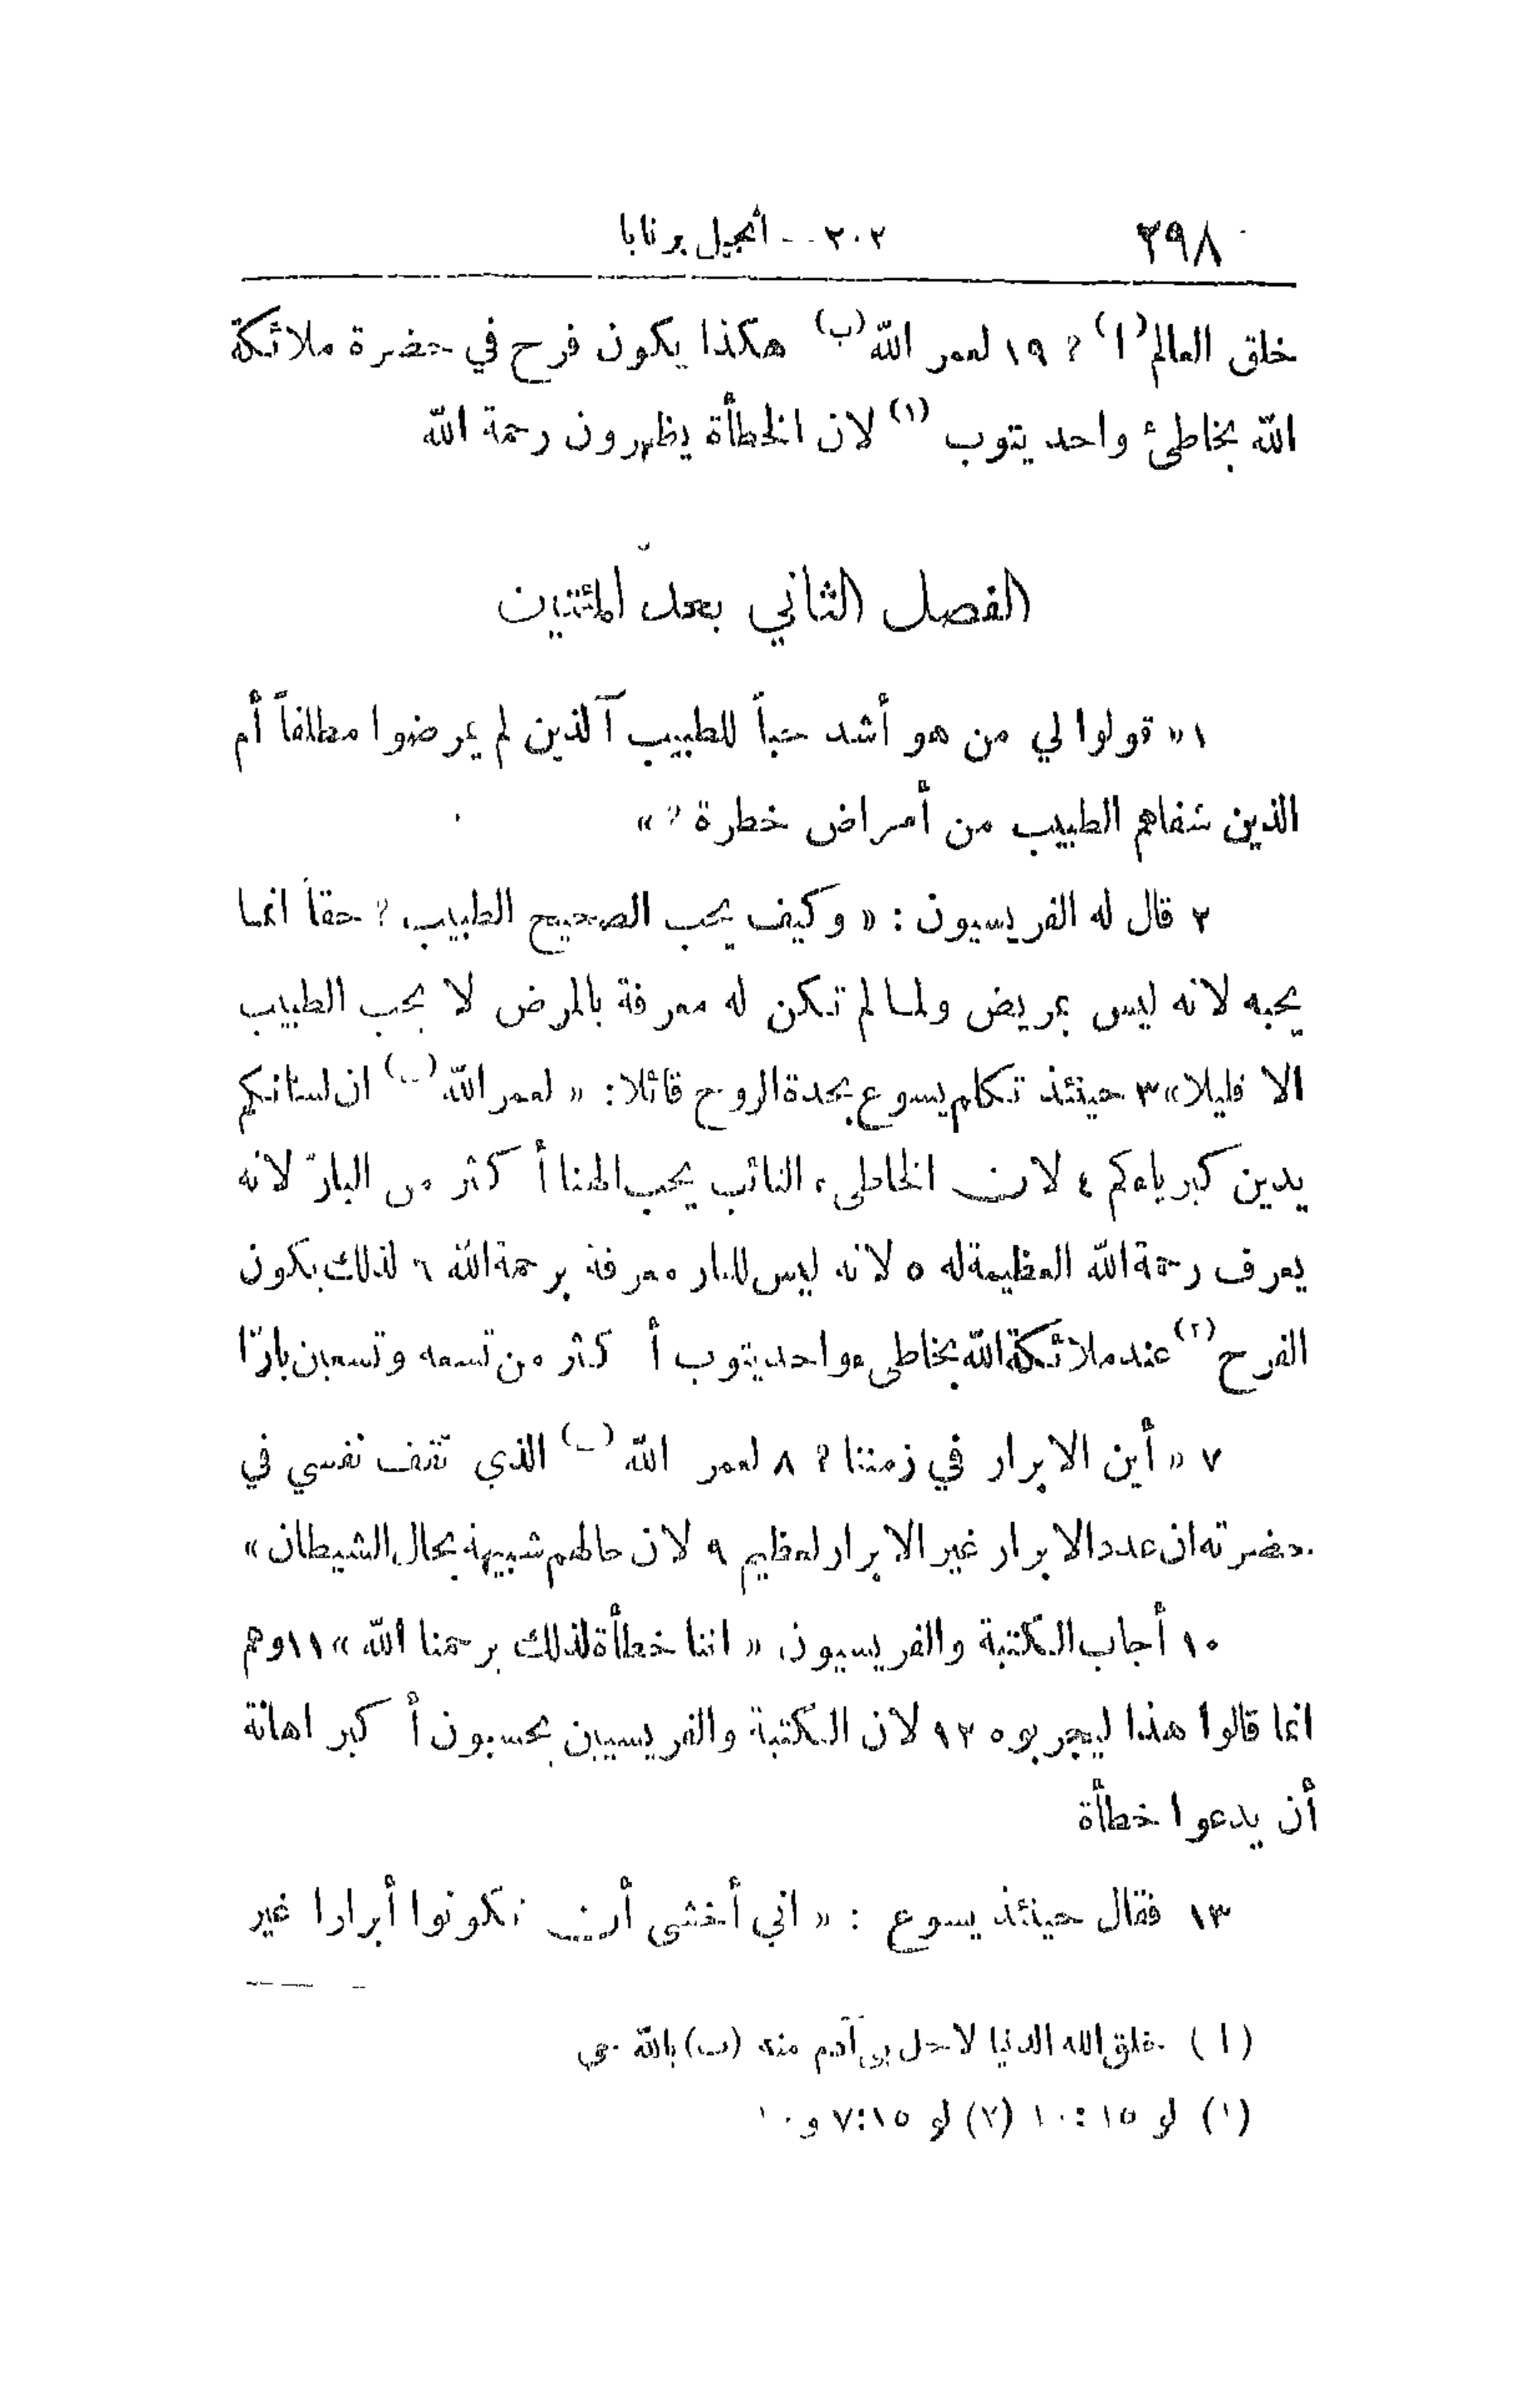 ٢٩٨ ٢٠٢ -- أنجيل برنابا
خلق العالم(ا) ؟ ١٩ لعمر الله(ب) هكذا يكون فرح في حضرة ملائكة
الله بخاطئ واحد يتوب (١) لان الخطأة يظهرون رحمة الله
الفصل الثاني بعد المئتين
١ « قولوا لي من هو أشد حباً للطبيب آلذين لم يمرضوا مطلقاً أم
الذين شفاهم الطبيب من أمراض خطرة ؟ »
٢ قال له الفريسيون : « وكيف يحب الصحيح الطبيب ؟ حقاً انما
يحبه لانه ليس بمريض ولما لم تكن له معرفة بالمرض لا يحب الطبيب
الا قليلا » ٣ حينئذ تكلم يسوع بحدة الروح قائلا : « لعمر الله(ب) ان لسانكم
يدين كبرياءكم ٤ لان الخاطىء التائب يحب الهنا أكثر من البارّ لانه
يعرف رحمة الله العظيمة له ٥ لانه ليس للبار معرفة برحمة الله ٦ لذلك يكون
الفرح (٢) عند ملائكة الله بخاطىء واحد يتوب أكثر من تسعه وتسعين بارّا
٧ « أين الابرار في زمننا ؟ ٨ لعمر الله (ب) الذي تقف نفسي في
حضرته ان عدد الابرار غير الابرار لعظيم ٩ لان حالهم شبيهة بحال الشيطان »
١٠ أجاب الكتبة والفريسيون « اننا خطأة لذلك يرحمنا الله » ١١ وهم
انما قالوا هذا ليجربوه ١٢ لان الكتبة والفريسيين يحسبون أكبر اهانة
أن يدعوا خطأة
١٣ فقال حينئذ يسوع : « اني أخشى أن تكونوا أبرارا غير
(ا) خلق الله الدنيا لاجل بي آدم منه (ب) بالله حي
(١) لو ١٥ : ١٠ (٢) لو ١٥ : ٧ و ١٠